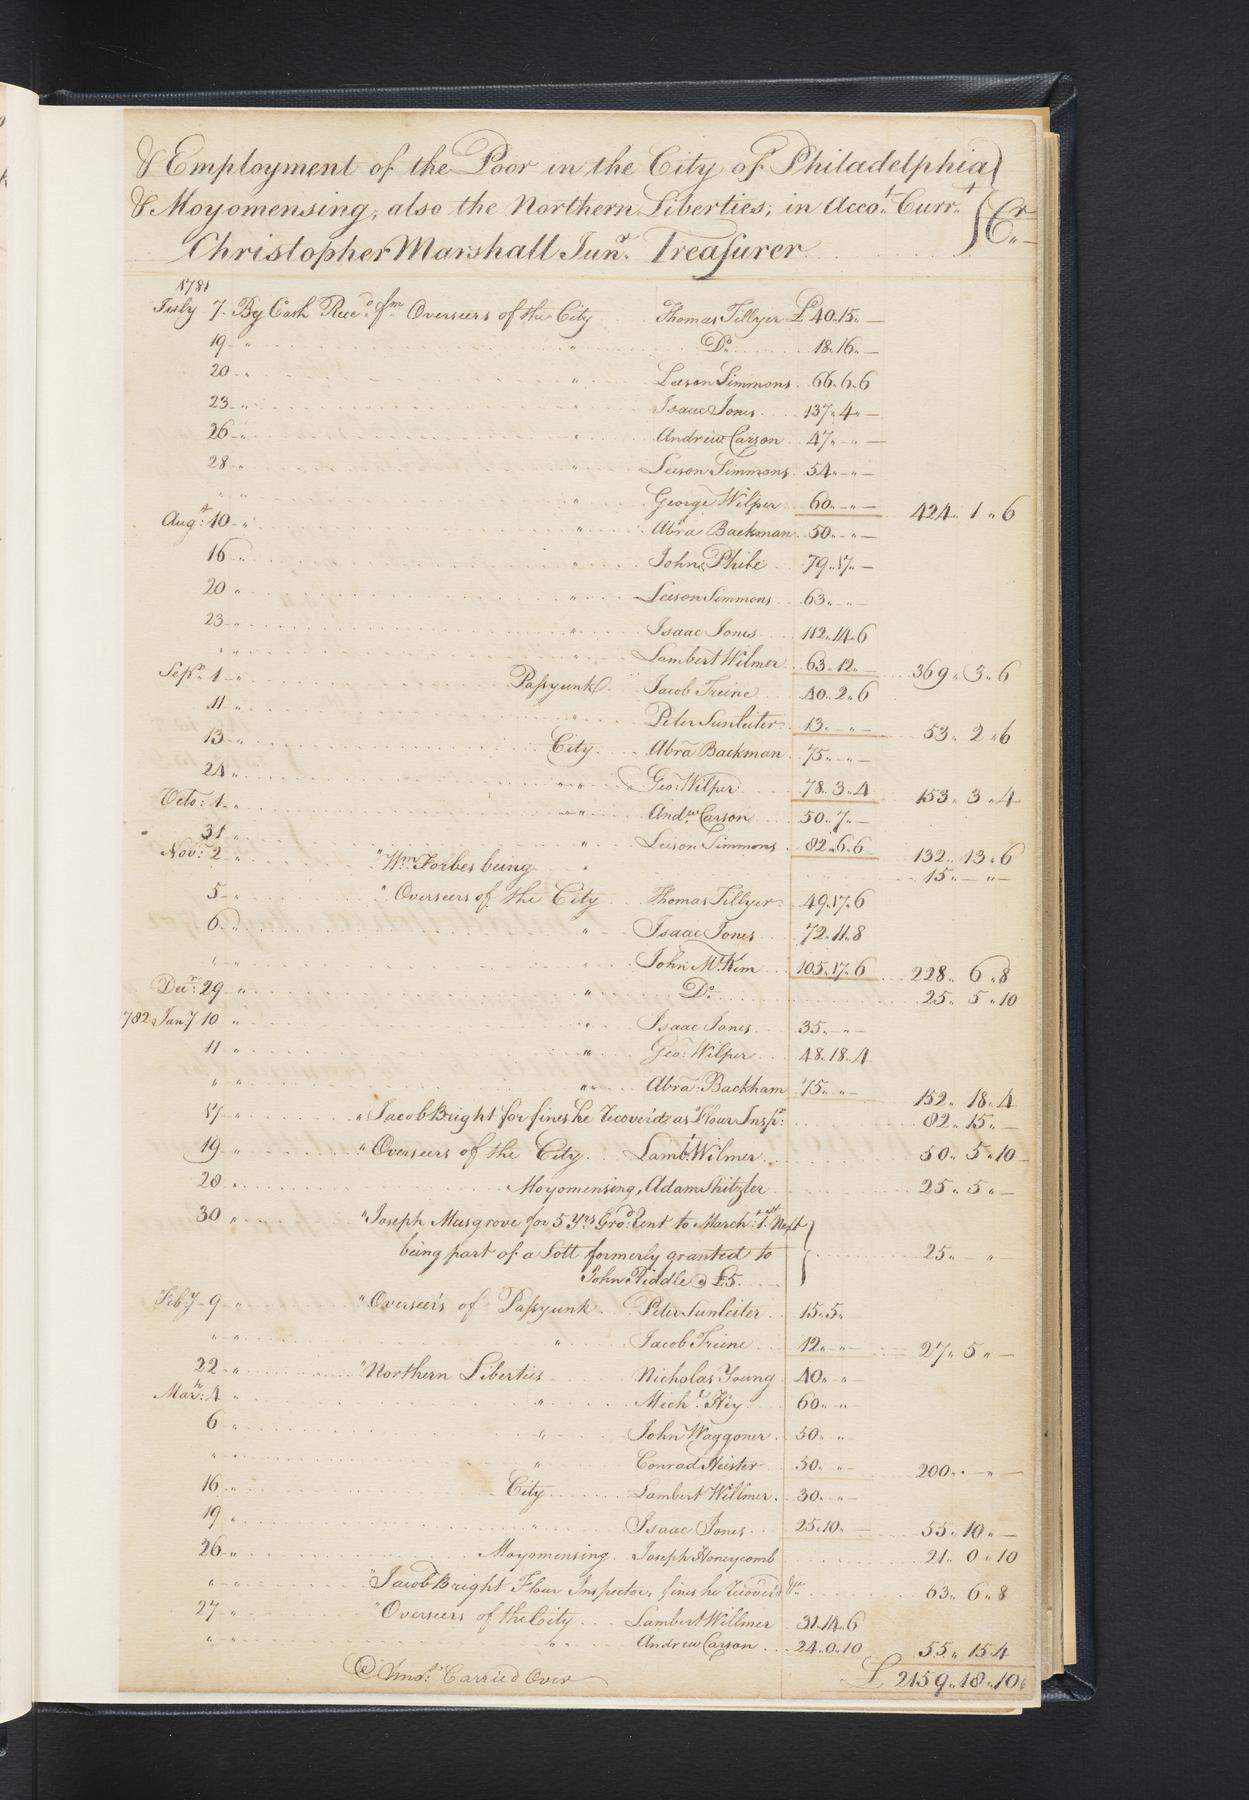 & Employment of the Poor in the City of Philadelphia
& Moyomensing, also the Northern Liberties; in Acco.t Curr.t Cr
Christopher Marshall Jun.r Treasurer
1781
July 7. By Cash Rec.d fm Overseers of the City Thomas Tillyer £ 40.15.. —
19 " " D.o 18.16.. —
20 " " Leeson Simmons 66..6..6
23 " " Isaac Jones 137..4.. —
26 " " Andrew Carson 47.. .. —
28 " " Leeson Simmons 54.. .. —
" " " George Wilper 60.. .. — 424.. 1 .. 6
Aug.t 10 " " Abra Backman 50.. .. —
16 " " John Phile 79..17.. —
20 " " Leeson Simmons 63.. .. —
23 " " Isaac Jones 112..14..6
" " " Lambert Wilmer 63..12.. — 369.. 3..6
Sep.r 1 " Passyunk Jacob Treine 40..2..6
11 " " Peter Sunleiter 13.. .. — 53.. 2..6
13 " City Abra Backman 75.. .. —
24 " " " Geo: Wilper 78..3..4 153.. 3..4
Octo: 1 " " " And.w Carson 50..7.. —
31 " " Leeson Simmons 82..6..6 132.. 13..6
Nov.r 2 " " W.m Forbes being " 15.. — .. —
5 " " Overseers of the City Thomas Tillyer 49..17..6
6 " " Isaac Jones 72..11..8
" " " John M.cKim 105..17..6 228.. 6..8
Dec.r 29 " " D.o 25.. 5..10
1782 Jan.y 10 " " Isaac Jones 35.. .. —
11 " " Geo: Wilper 48..18..4
" " " " Abra: Backham 75.. .. 152.. 18..4
17 " " Jacob Bright for fines he Recover'd as Flour Insp.r 82.. 15.. —
19 " " Overseers of the City Lamb.t Wilmer 50.. 5..10
28 " Moyomensing, Adam Shitzler 25.. 5.. —
30 " " Joseph Musgrove for 5 Y.rs Gro.d Rent to March 1.st Next
being part of a Lott formerly granted to 25.. — "
John Riddle @ £5
Feb.y 9 " " Overseers of Passyunk Peter Sunleiter 15..5..
" " " Jacob Treine 12.. .. — 27.. 5.. —
22 " " Northern Liberties Nicholas Young 40.. .. —
Mar.h 4 " " Mich.l Hey 60.. .. —
6 " " John Waggoner 50.. ..
" " " Conrad Heister 50.. .. — 200.. .. —
16 " City Lambert Willmer 30.. .. —
19 " " Isaac Jones 25..10.. — 55.. 10.. —
26 " Moyomensing Joseph Honeycomb 21.. 0..10
" " " Jacob Bright Flour Inspector, fines he Recover'd &c. 63.. 6..8
27 " " Overseers of the City Lambert Willmer 31..14..6
" " " Andrew Carson 24..0..10 55.. 15..4
Amo.t Carried Over £ 2159..18..10